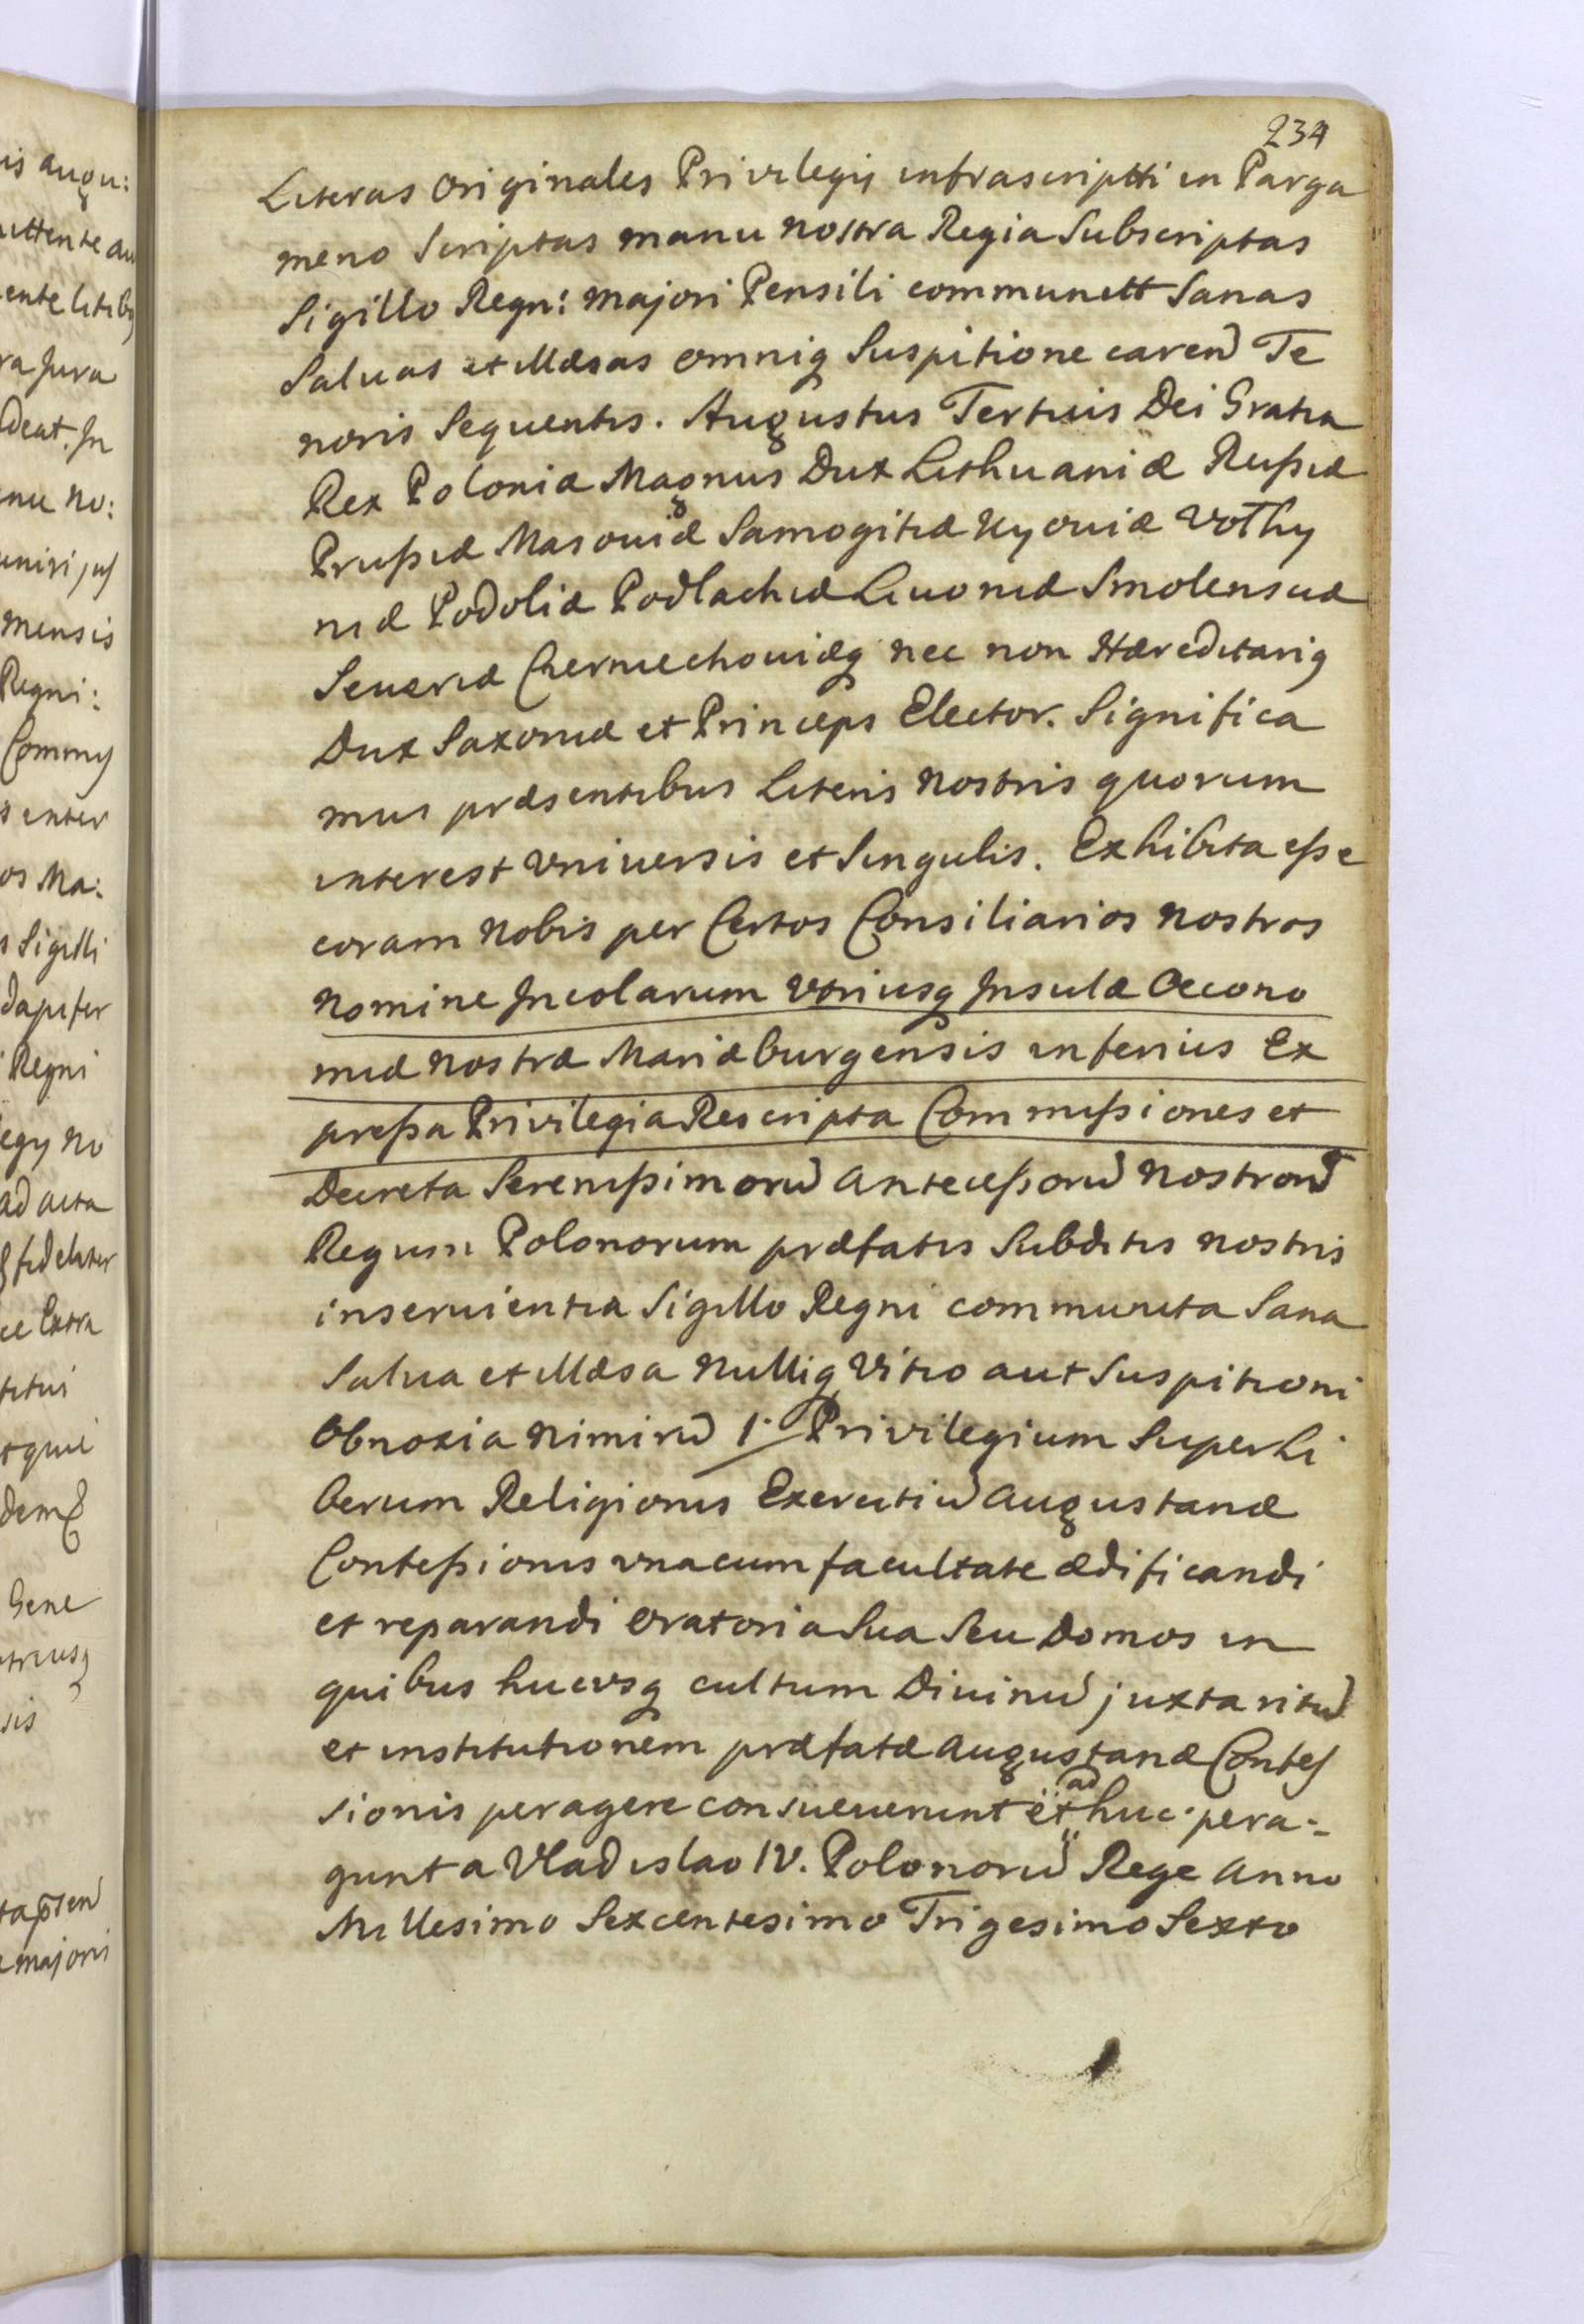 234
is augu:
ittente au
ente litib9
ra Jura
deat. Jn
nu no:
uniri jus
mensis
Regni:
Commis
s inter
os Ma:
s Sigilli
dapifer
Regni
egij no
ad acta
fideliter
ce Extra
titui
t qui
Gene
triusq
sis
majoris
Literas Originales Privilegij infrascriptti in Parga
meno Scriptas manu nostra Regia Subscriptas
Sigillo Regni: majori Pensili communitt Sanas
Saluas et Illæsas omniq Suspitione caren Te
noris Sequentis. Augustus Tertius Dei Gratia
Rex Poloniæ Magnus Dux Lithuaniæ Rußiæ
Prußiæ Masouiæ Samogitiæ Kyouiæ Volhy
niæ Podoliæ Podlachiæ Liuoniæ Smolensciæ
Seueriæ Czerniechouiæq nec non Hæreditarig
Dux Saxoniæ et Princeps Elector. Significa
mus præsentibus Literis nostris quorum
interest vniuersis et Singulis. Exhibita eße
coram nobis per Certos Consiliarios nostros
nomine Jncolarum vtriusq Jnsulæ Oecono
miæ nostræ Mariæburgensis inferius Ex
preßa Privilegia Rescripta Commißiones et
Decreta Serenißimorũ Anteceßorũ nostrorũ
Regum Polonorum præfatis Subditis nostris
inseruientia Sigillo Regni communita Sana
Salua et Illæsa nulliq Vitio aut Suspitioni
Obnoxia nimirũ 1. Privilegium Super Li
berum Religionis Exercitiũ Augustanæ
Confeßionis vnacum facultate ædificandi
et reparandi Oratoria Sua Seu Domos in
quibus hucvsq cultum Diuinũ juxta ritũ
et institutionem præfatæ Augustanæ Confes
sionis peragere consueuerunt et ad huc pera-
gunt a Vladislao IV. Polonorũ Rege Anno
Millesimo Sexcentesimo Trigesimo Sexto